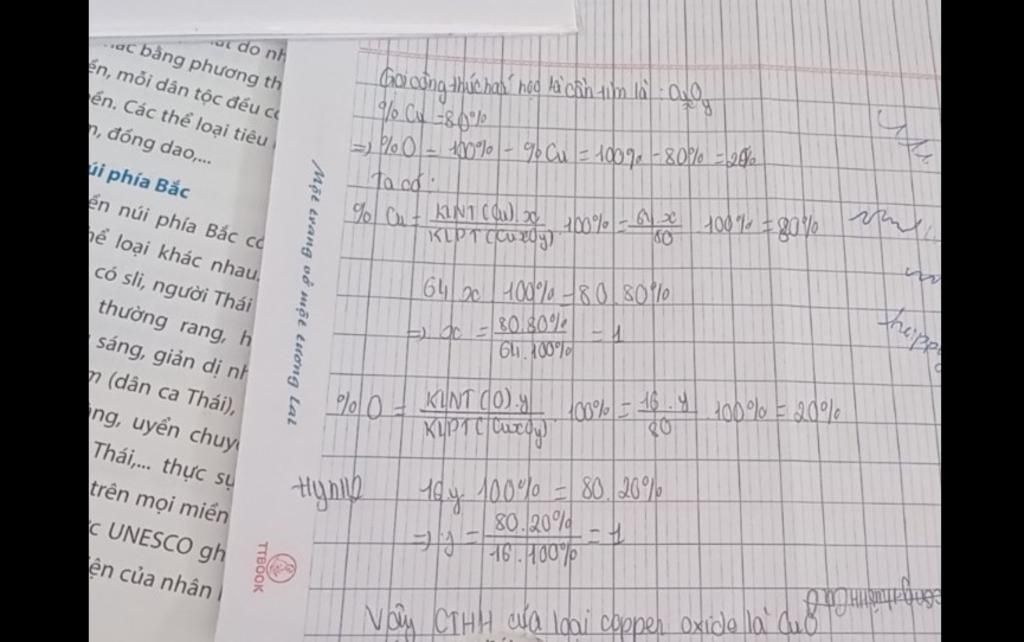 do nh
ác bằng phương th
ền, mỗi dân tộc đều có
ến. Các thể loại tiêu
n, đồng dao,...
úi phía Bắc
ền núi phía Bắc có
hể loại khác nhau.
có sli, người Thái
thường rang, h
sáng, giản dị nh
m (dân ca Thái),
ng, uyển chuyể
Thái,... thực sự
trên mọi miền
C UNESCO gh
ện của nhân
Một trang vở một tương lai
TTBOOK
Gọi công thức hoá học là cần tìm là : CuxOy
% Cu = 80%
=> %O = 100% - %Cu = 100% - 80% = 20%
Ta có :
% Cu = KLNT (Cu).x / KLPT (CuxOy) . 100% = 64.x / 80 . 100% = 80%
64 . x . 100% = 80.80%
=> x = 80.80% / 64.100% = 1
% O = KLNT (O).y / KLPT (CuxOy) . 100% = 16.y / 80 . 100% = 20%
16.y 100% = 80.20%
=> y = 80.20% / 16.100% = 1
Vậy CTHH của loại copper oxide là CuO